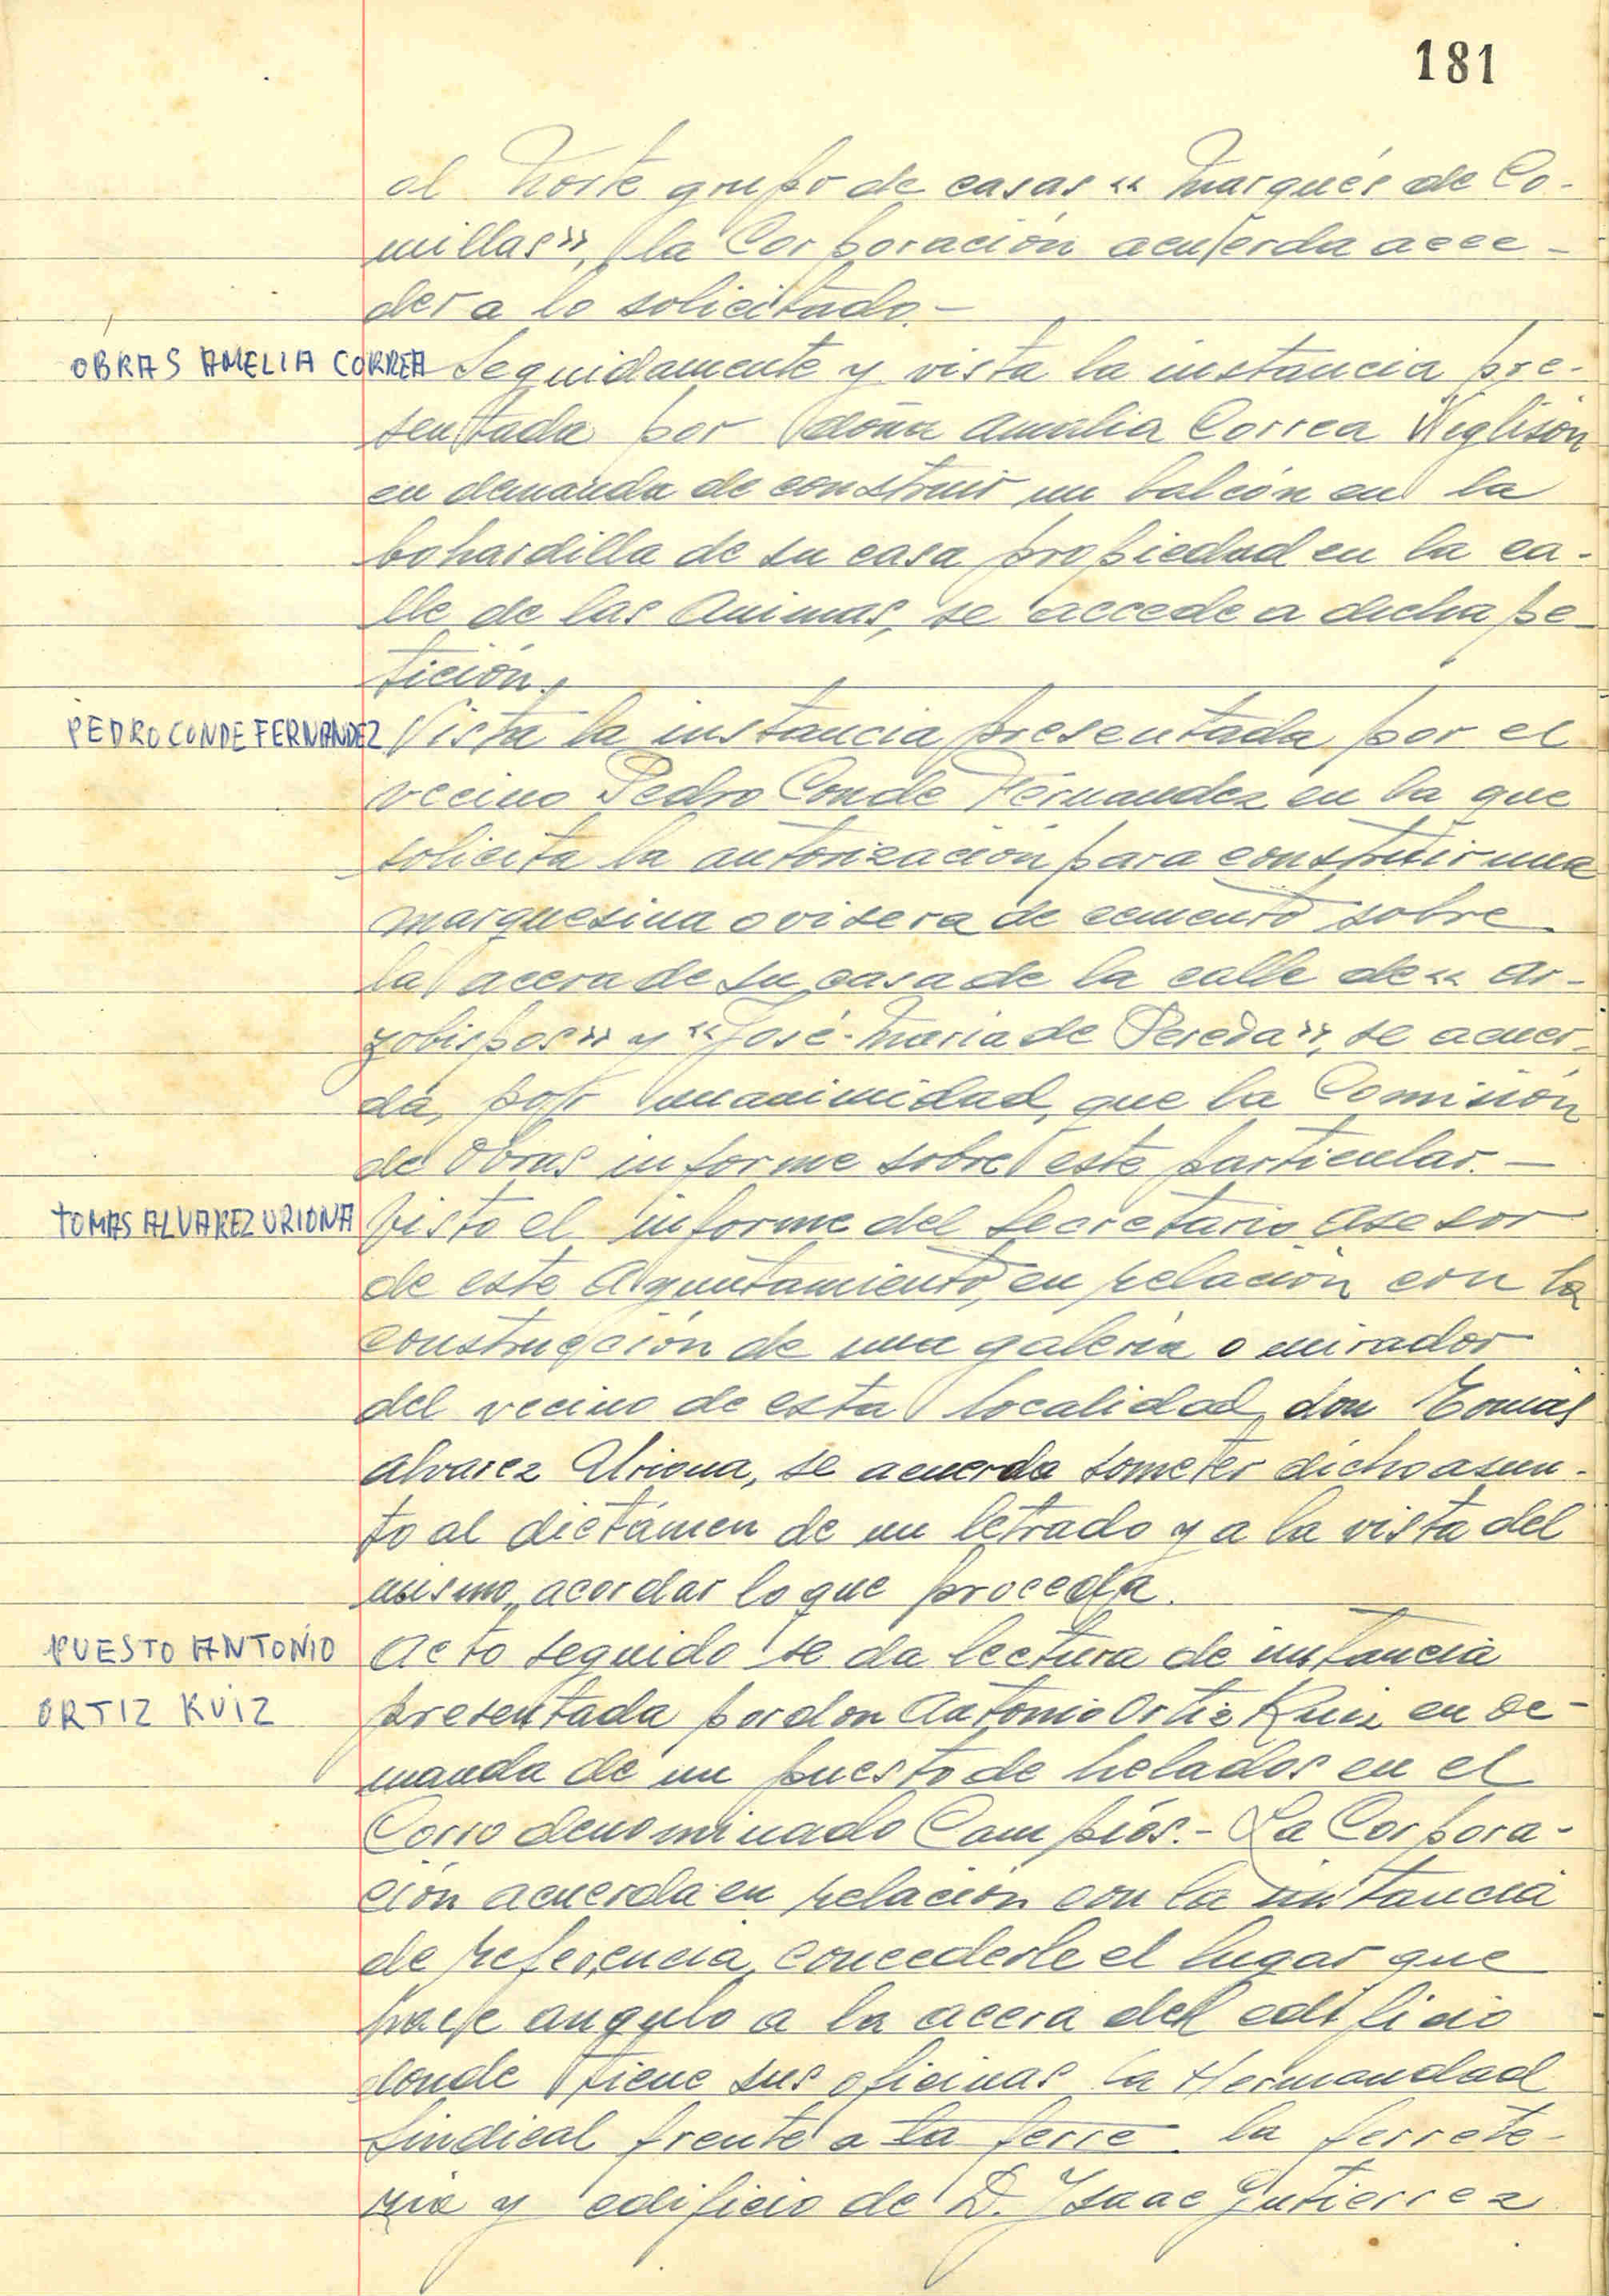 181
al Norte grupo de casas «Marqués de Co-
millas», la Corporación acuerda acce-
der a lo solicitado.-
OBRAS AMELIA CORREA Seguidamente y vista la instancia pre-
sentada por doña Amalia Correa
en demanda de construir un balcón en la
bohardilla de su casa propiedad en la ca-
lle de las Animas, se accede a dicha pe-
tición.
PEDRO CONDE FERNANDEZ Vista la instancia presentada por el
vecino Pedro Conde Fernandez en la que
solicita la autorización para construir una
marquesina o visera de cemento sobre
la acera de su casa de la calle de «Ar-
zobispos» y «José-Maria de Pereda», se acuer-
da, por unanimidad, que la Comisión
de Obras informe sobre este particular.-
TOMAS ALVAREZ URIONA Visto el informe del Secretario Asesor
de este Ayuntamiento, en relación con la
construcción de una galería o mirador
del vecino de esta localidad, don Tomás
Alvarez Uriona, se acuerda someter dicho asun-
to al dictámen de un letrado y a la vista del
mismo, acordar lo que proceda.
PUESTO ANTONIO Acto seguido se da lectura de instancia
ORTIZ RUIZ presentada por don Antonio Ortiz Ruiz en de-
manda de un puesto de helados en el
Corro denominado Campíos.- La Corpora-
ción acuerda en relación con la instancia
de referencia, concederle el lugar que
hace angulo a la acera del edificio
donde tiene sus oficinas la Hermandad
Sindical frente a la ferre la ferrete-
ria y edificio de D. Ysaac Gutierrez